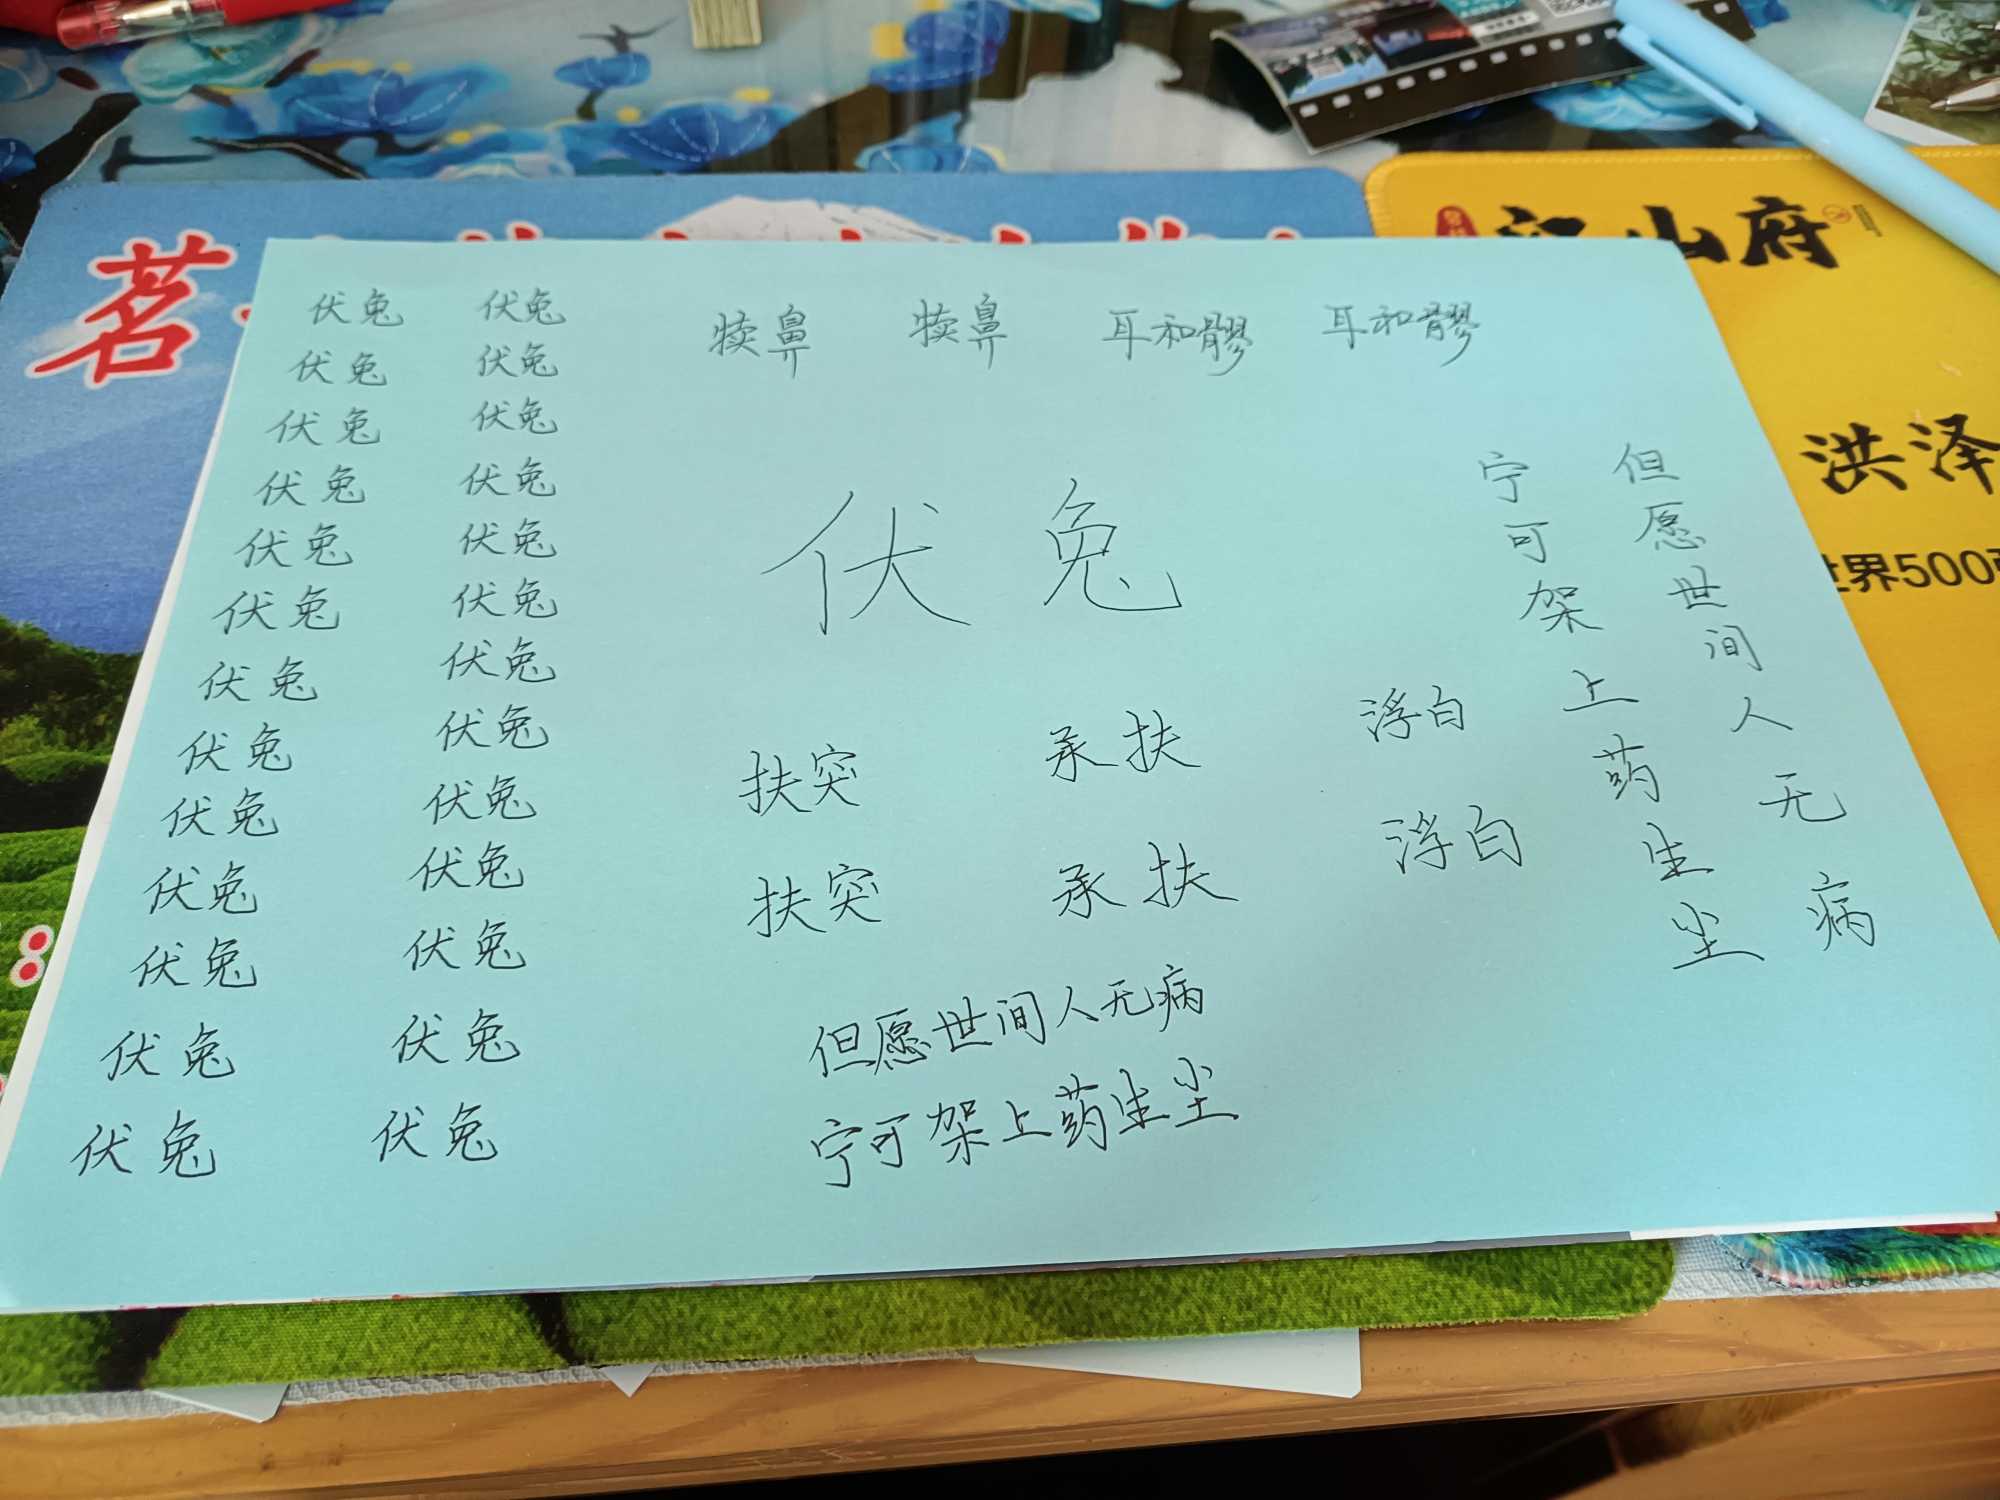 茗
江山府
洪泽
世界500
伏兔 伏兔 犊鼻 犊鼻 耳和髎 耳和髎
伏兔 伏兔
伏兔 伏兔
伏兔 伏兔
伏兔 伏兔
伏兔 伏兔
伏兔 伏兔
伏兔 伏兔
伏兔 伏兔
伏兔 伏兔
伏兔 伏兔
伏兔 伏兔
伏兔 伏兔
伏兔
扶突 承扶 浮白
扶突 承扶 浮白
但愿世间人无病
宁可架上药生尘
但愿世间人无病
宁可架上药生尘
8